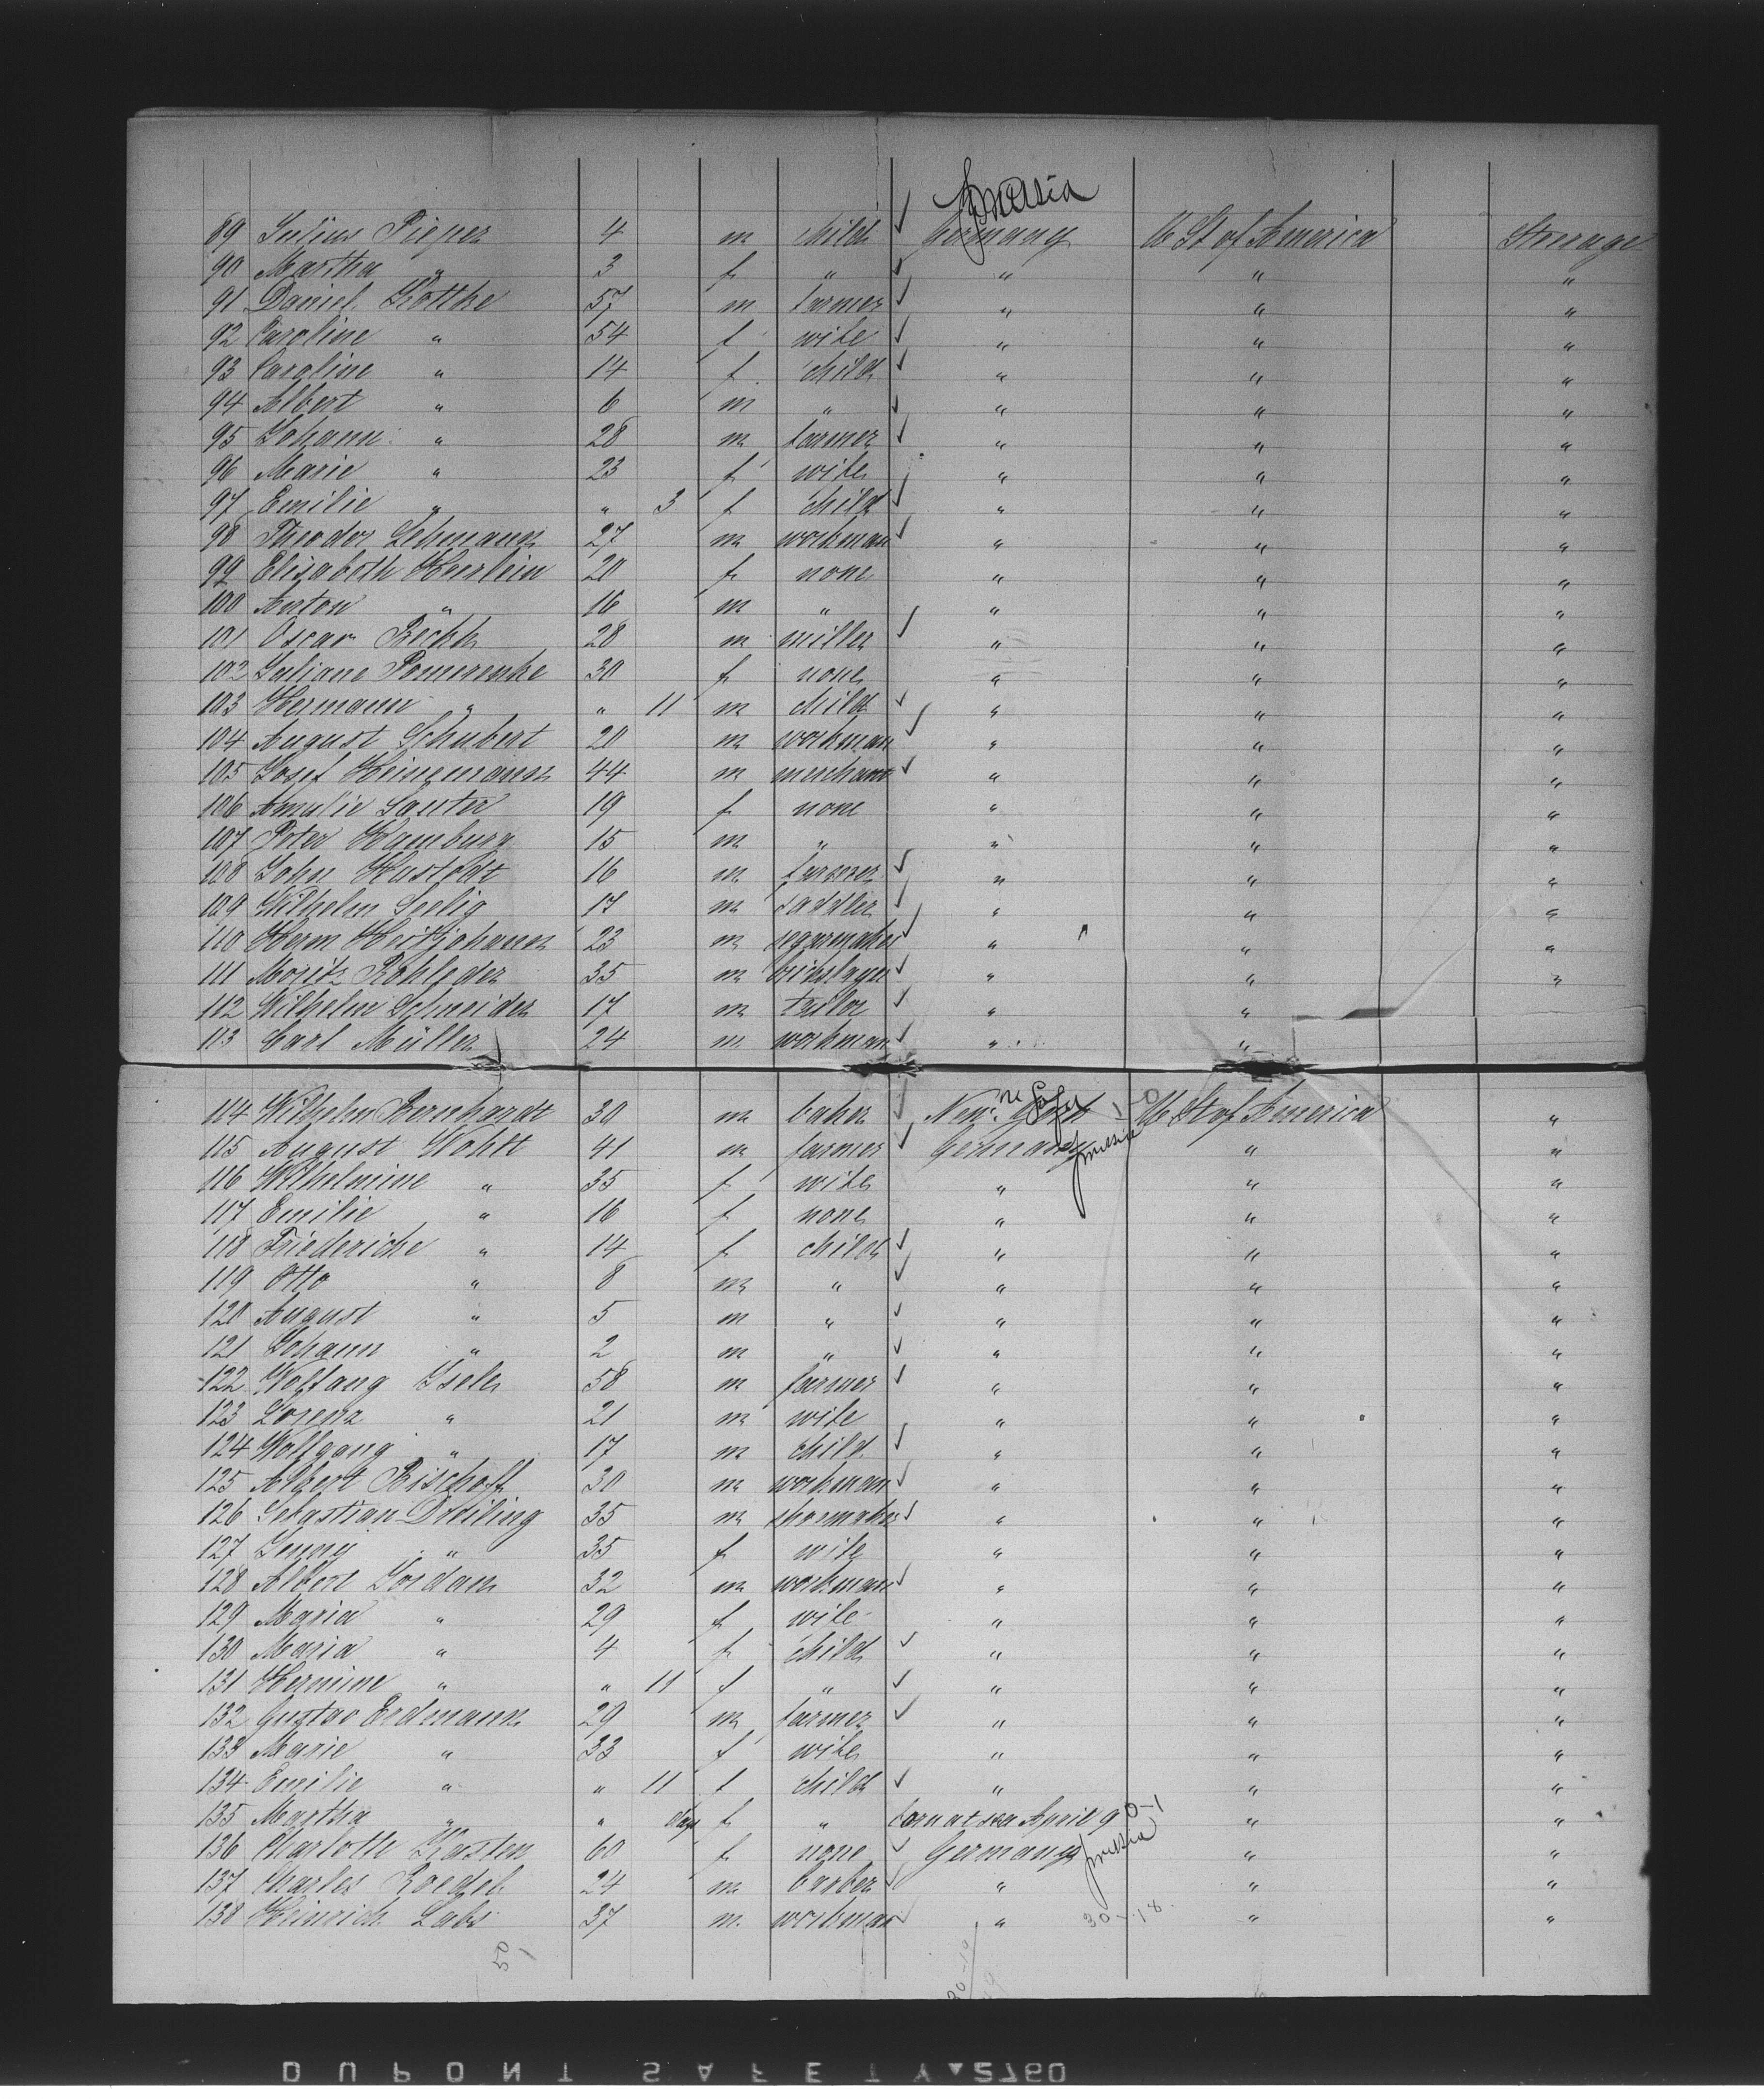 Prussia
89 Julius Pieper 4 m child Germany U St of America Steerage
90 Martha " 3 f " " " "
91 Daniel Köttke 57 m farmer " " "
92 Caroline " 54 f wife " " "
93 Caroline " 14 f child " " "
94 Albert " 6 m " " " "
95 Johann " 28 m farmer " " "
96 Marie " 23 f wife " " "
97 Emilie " " 3 f child " " "
98 Theodor Lehmann 27 m workman " " "
99 Elisabeth Heerlein 20 f none " " "
100 Anton " 16 m " " " "
101 Oscar 28 m miller " " "
102 Juliane Pomerenke 30 f none " " "
103 Hermann " " 11 m child " " "
104 August Schubert 20 m workman " " "
105 Josef Heinemann 44 m merchant " " "
106 Amalie Sauter 19 f none " " "
107 Peter Hamburg 15 m " " " "
108 John 16 m farmer " " "
109 Wilhelm Seelig 17 m saddler " " "
110 Herm Heitjohann 23 m segarmaker " " "
111 Moritz Rohleder 35 m briklayer " " "
112 Wilhelm Schneider 17 m tailor " "
113 Carl Müller 24 m workman " "
114 Wilhelm Bernhardt 30 m baker New York U St of America "
115 August Wohlt 41 m farmer Germany Prussia " "
116 Wilhelmine " 35 f wife " " "
117 Emilie " 16 f none " " "
118 Friedericke " 14 f child " " "
119 Otto " 8 m " " " "
120 August " 5 m " " " "
121 Johann " 2 m " " " "
122 Wolfang Isele 58 m farmer " " "
123 Lorenz " 21 m wife " " "
124 Wolfgang " 17 m child " " "
125 Albert Bischoff 30 m workman " " "
126 Sebastian Dreiling 35 m shoemaker " " "
127 Jenny " 35 f wife " " "
128 Albert Jordan 32 m workman " " "
129 Maria " 29 f wife " " "
130 Maria " 4 f child " " "
131 Hermine " " 11 f " " " "
132 Gustav Erdmann 29 m farmer " " "
133 Marie " 33 f wife " " "
134 Emilie " " 11 f child " " "
135 Martha " " days f " born at sea April 9 0-1 " "
136 Charlotte Kasten 60 f none Germany Prussia " "
137 Charles Roedel 24 m barber " " "
138 Heinrich Labs 37 m workman " 30-18 " "
50
1
DUPONT SAFETY 2760